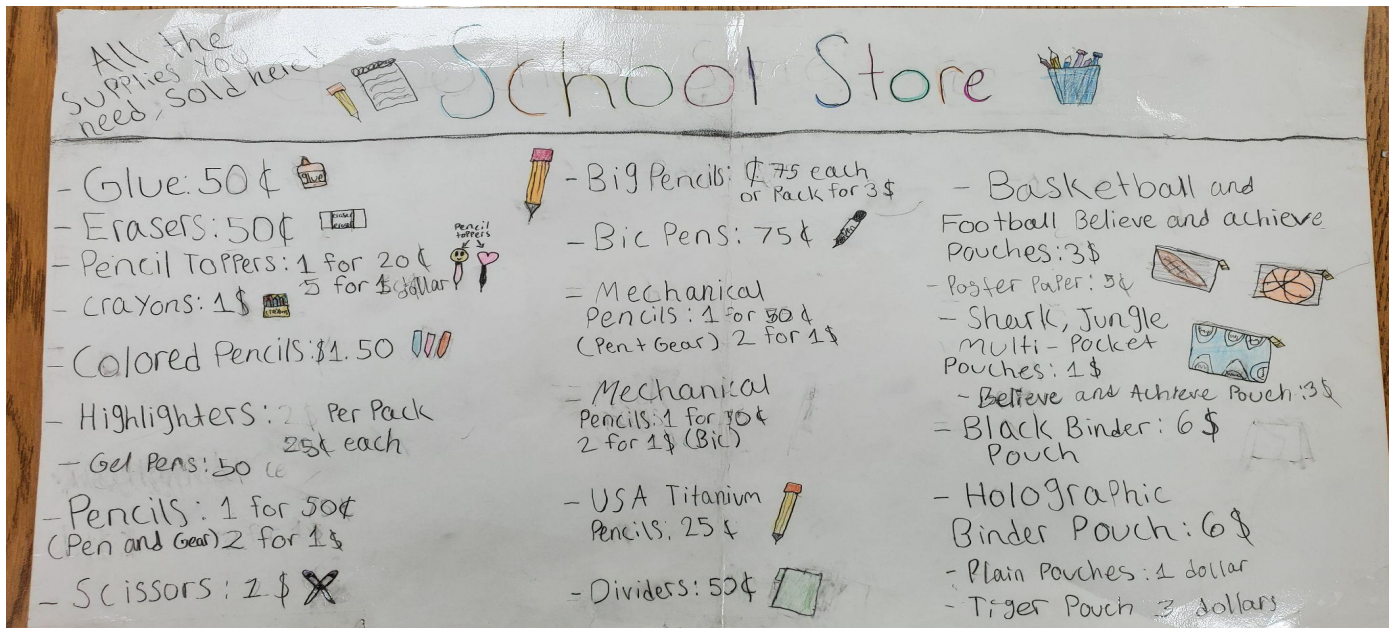 All the
supplies you
need, sold here!
School Store
- Glue: 50¢
glue
- Erasers: 50¢
eraser
Pencil
toppers
- Pencil Toppers: 1 for 20¢
5 for 1 dollar
- Crayons: 1$
crayons
- Colored Pencils: $1.50
- Highlighters: 2$ Per Pack
25¢ each
- Gel Pens: 50
- Pencils: 1 for 50¢
(Pen and Gear) 2 for 1$
- Scissors: 1$
- Big Pencils: ¢75 each
or Pack for 3$
- Bic Pens: 75¢
= Mechanical
Pencils: 1 for 50¢
(Pen + Gear) 2 for 1$
= Mechanical
Pencils: 1 for 50¢
2 for 1$ (Bic)
- USA Titanium
Pencils: 25¢
- Dividers: 50¢
- Basketball and
Football Believe and achieve
Pouches: 3$
- Poster Paper: 5¢
- Shark, Jungle
Multi-Pocket
Pouches: 1$
- Believe and Achieve Pouch: 3$
= Black Binder: 6$
Pouch
- Holographic
Binder Pouch: 6$
- Plain Pouches: 1 dollar
- Tiger Pouch 3 dollars